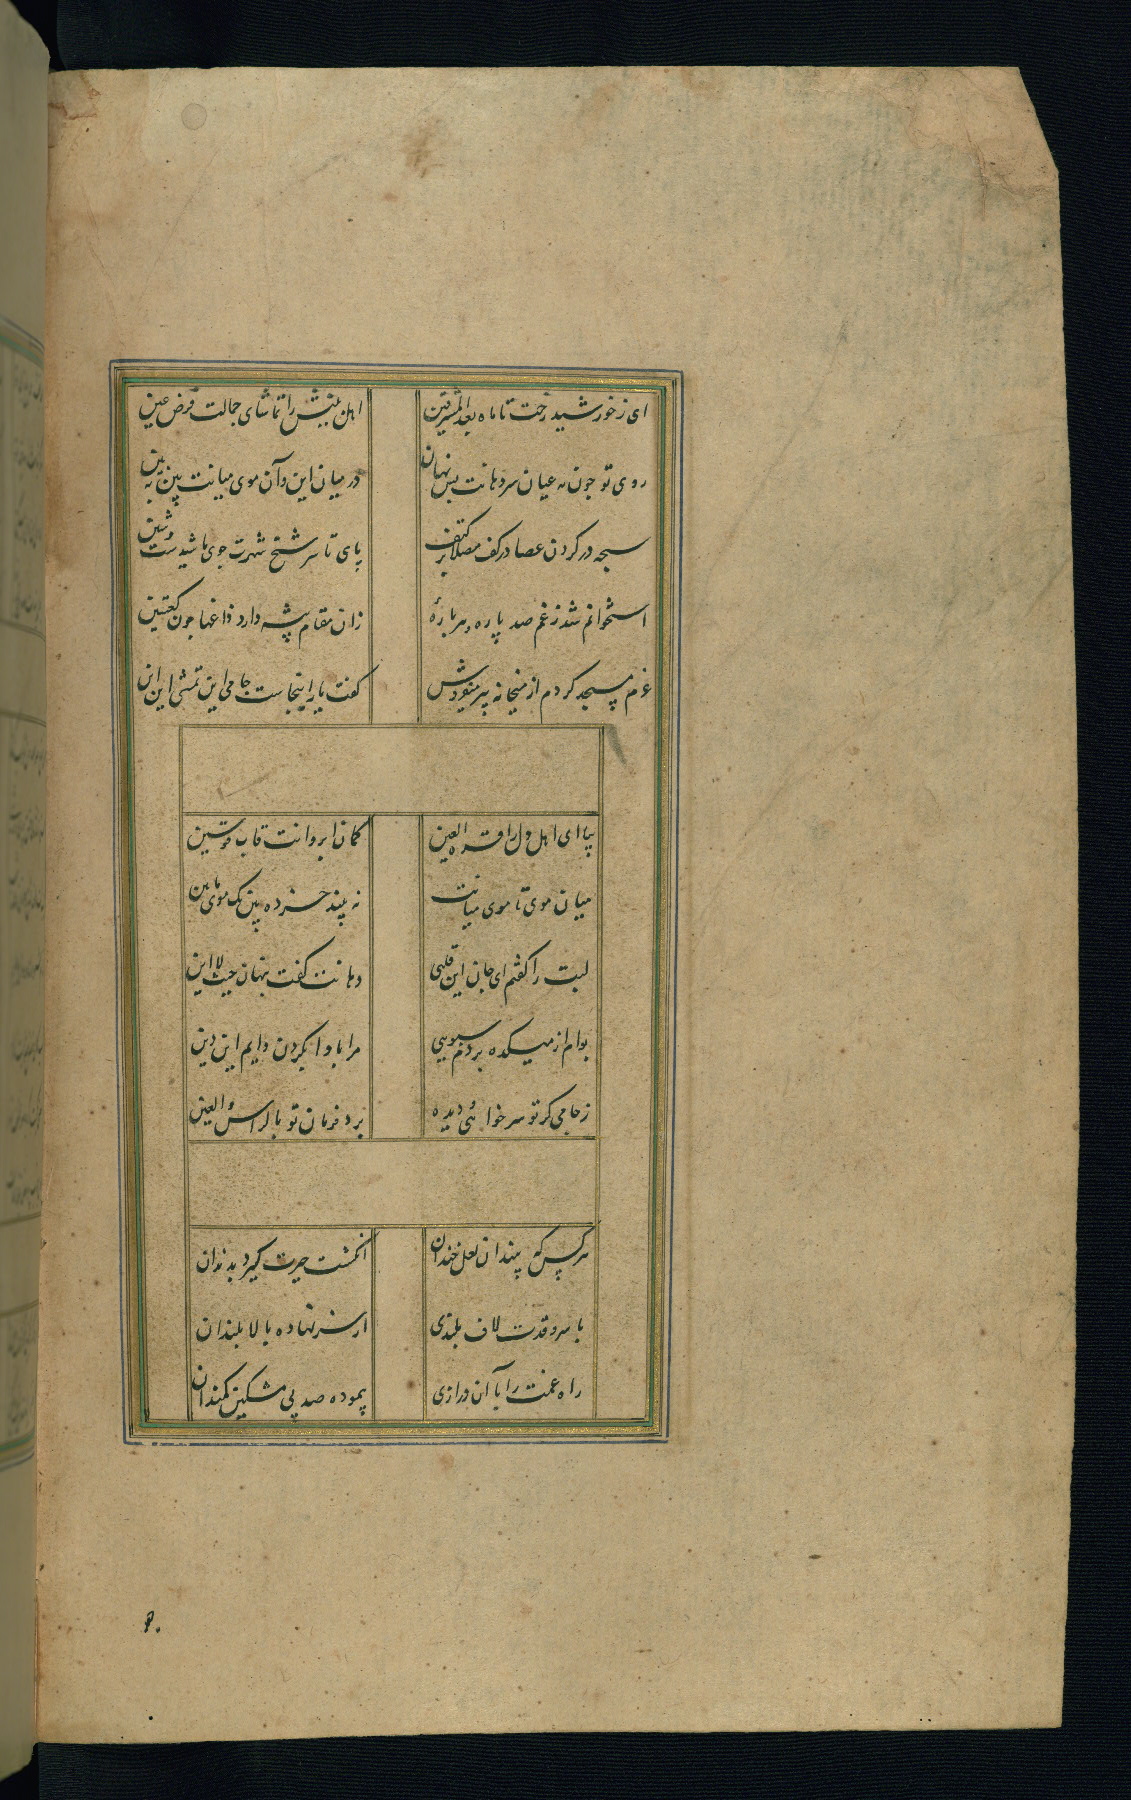 ای ز خورشید رخت تا ماه بعد المشرقین اهل بینش را تماشای جمالت فرض عین
روی تو چون مه عیان سر دهانت بس نهان در میان این و آن موی میانت بین بین
سبحه در گردن عصا در کف مصلا بر کتف پای تا سر شیخ شهرت جوی ما شیدست وشین
استخوانم شد ز غم صد پاره و هر پارهٔ زان مقام پیشه دارد داغها چون کعبتین
عزم مسجد کردم از میخانه پیر میفروش گفت یا به اینجاست جامی این تمشی این این
بیا ای اهل دل را قرة العین کمان ابروانت قاب قوسین
میان موی تا موی میانت نه بیند خرده بین یک موی مابین
لبت را گفتم ای جان این قلبی دهانت گفت پنهان حیث لا این
بوام از میکده بردم سبویی مرا باد ا بگردن دایم این دین
ز جامی گر تو سر خواهی دیده برد فرمان تو بالراس والعین
هر کس که بیند آن لعل خندان انگشت حیرت گیرد بدندان
با سرو قدت لاف بلندی از سر نهاده بالا بلندان
راه غمت را با آن درازی پیموده صد پی مشکین کمندان